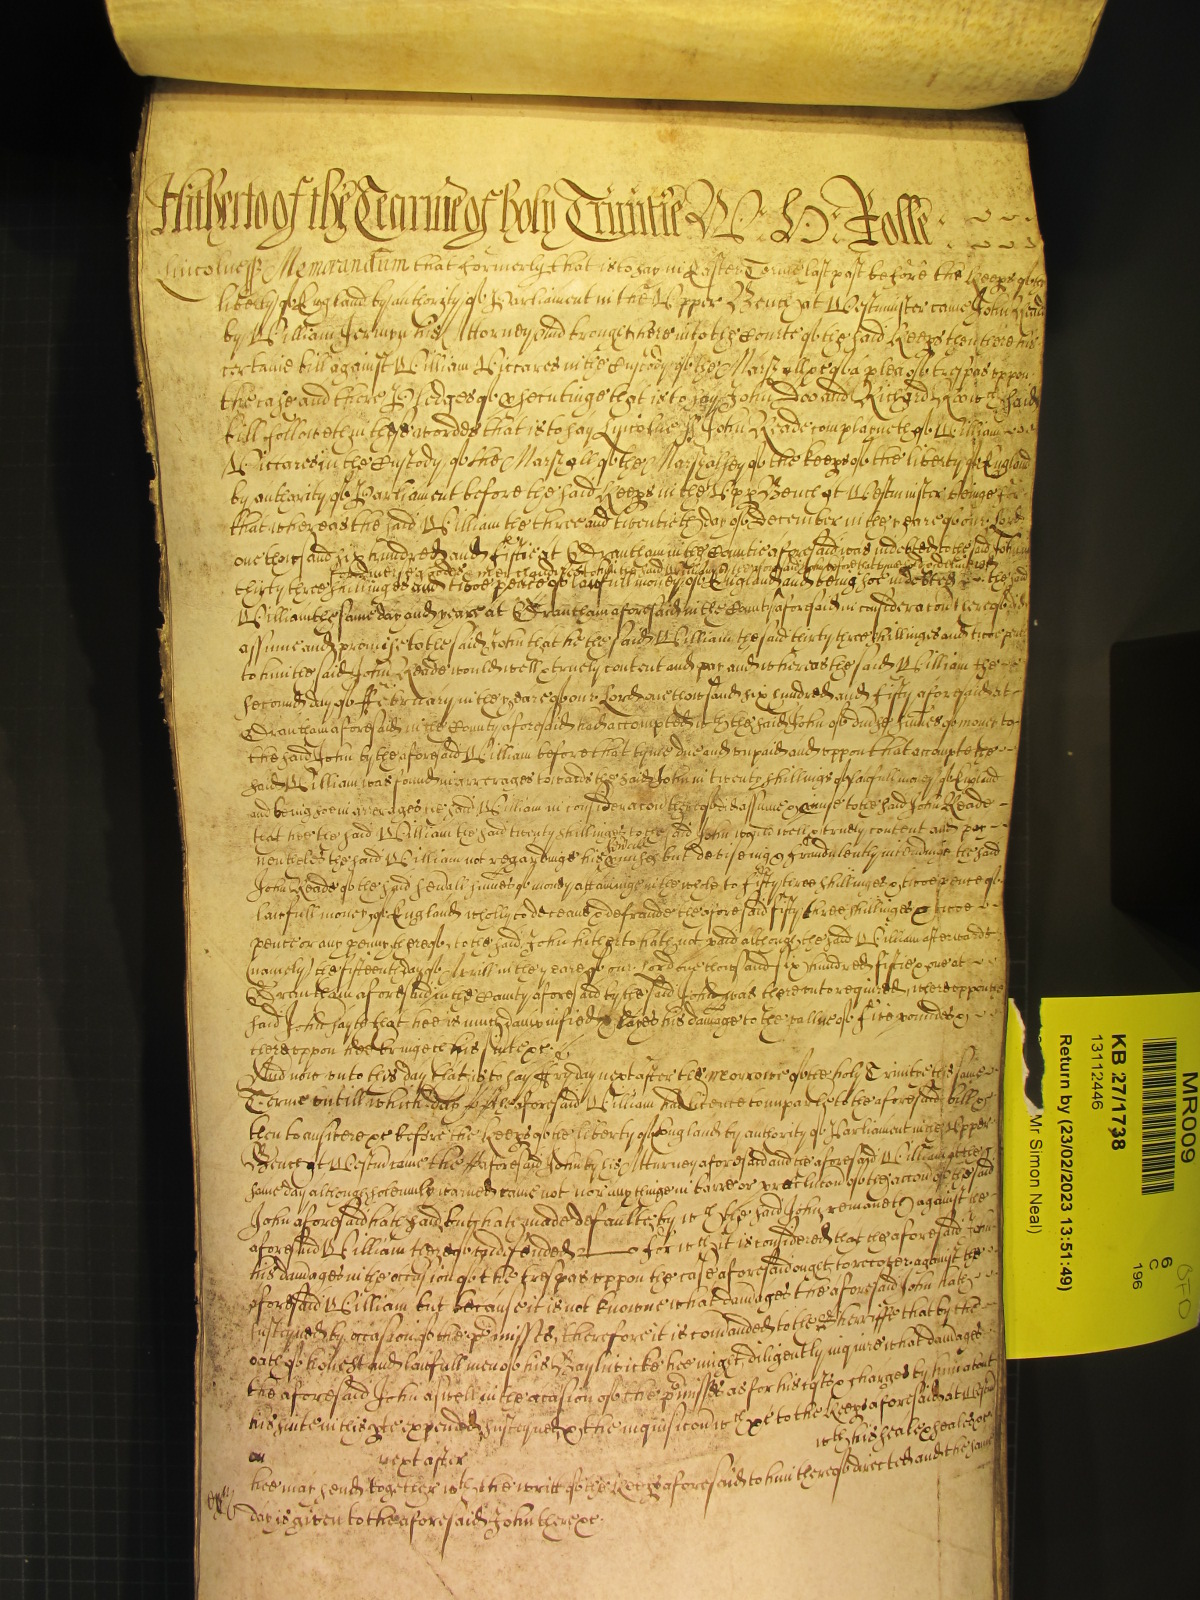 Hitherto of the Tearme of holy Trinitie W: H: Rolle
Lincolness Memorandum that formerly that is to say in Easter Terme last past before the Keeps of the
liberty of England by authority of Parliament in the Upper Bench at Westminster came John Reade
by William his Attorney and brought here into the Courte of the said Keeps then there his
certaine bill against William Viccares in the Custody of the Marshall &c of a plea of trespas uppon
the case and there Pledges of prosecutinge that is to say John Doo and Richard Roo wch said
bill followeth in these wordes that is to say Lincolne ss John Reade complayneth of William
Viccares in the Custody of the Marshall of the Marshalsey of the keeps of the liberty of England
by authority of Parliament before the said Keeps in the Upp Bench at Westminster beinge for
that whereas the said William the three and twentieth day of December in the yeare of our Lord
one thousand six hundred and fiftie at Grantham in the Countie aforesaid was indebted to the said John in
thirty three shillinges and twoe pence of lawfull money of England and being soe indebted the said
William the same day and yeare at Grantham aforesaid in the County aforesaid in consideracon thereof did
assume and promise to the said John that he the said William the said thirty three shillinges and twoe pence
to him the said John Reade would well & truely content and pay and whereas the said William the
second day of February in the yeare of our Lord one thousand six hundred and fifty aforesaid at
Grantham aforesaid in the County aforesaid had accompted wth the said John of divse summes of money to
the said John by the aforesaid William before that tyme due and unpaid and uppon that accompte the
said William was found in arrerages towards the said John in twenty shillings of lawfull money of England
and being soe in arrerages he said William in consideracon thereof did assume & pmise to the said John Reade
that hee the said William the said twenty shillinges to the said John would well & truely content and pay
neverthelesse the said William not regardinge his severall pmises but devising & fraudulently intendinge the said
John Reade of the said sevall summes of money attaininge in the whole to fifty three shillinges & twoe pence of
lawfull money of England wholly to deceave & defraude the aforesaid fifty three shillinges & twoe
pence or any penny thereof to the said John hitherto hath not paid although the said William afterwards
(namely) the fifteenth day of Aprill in the yeare of our Lord one thousand six hundred fiftie & one at
Grantham aforesaid in the County aforesaid by the said John was thereunto required whereuppon the
said John sayth that hee is much damnified & hayes his damage to the vallue of five poundes &
thereuppon hee bringeth his suite &c
And now unto this day that is to say Fryday next after the morrowe of the holy Trinitie this same
Terme untill which day the aforesaid William had licence to imparle to the aforesaid bill &
then to answere &c before the Keeps of the liberty of England by authority of Parliament in the Upper
Bench at Westm came the aforesaid John by his Atturney aforesaid and the aforesaid William att the
same day although solemnly warned came not nor any thinge in barre or preclucon of the accon of the said
John aforesaid hath said but hath made defaulte by wch the said John remaneth against the
aforesaid William thereof undefended for wch it is considered that the aforesaid John
his damages in the occasion of the trespas uppon the case aforesaid ought to recover against the
aforesaid William but because it is not knowne what damages the aforesaid John hath
susteyned by occasion of the pmisses therefore it is comanded to the Sherriffe that by the
oath of honest and lawfull men of his Baylywicke hee might diligently inquire what damages
the aforesaid John aswell in the occasion of the pmisses as for his costs & charges by him about
his suite in this pte expended susteyned & the inquisicon wch &c to the Keeps aforesaid at Westm
on next after wth his seale & seales &c
hee may send together wth the writt of the Keeps aforesaid to him thereof directed and the same
day is given to the aforesaid John there &c
MR009
KB 27/1738
13112446
Return by (23/02/2023 13:51:49)
Mr Simon Neal)
6
C
196